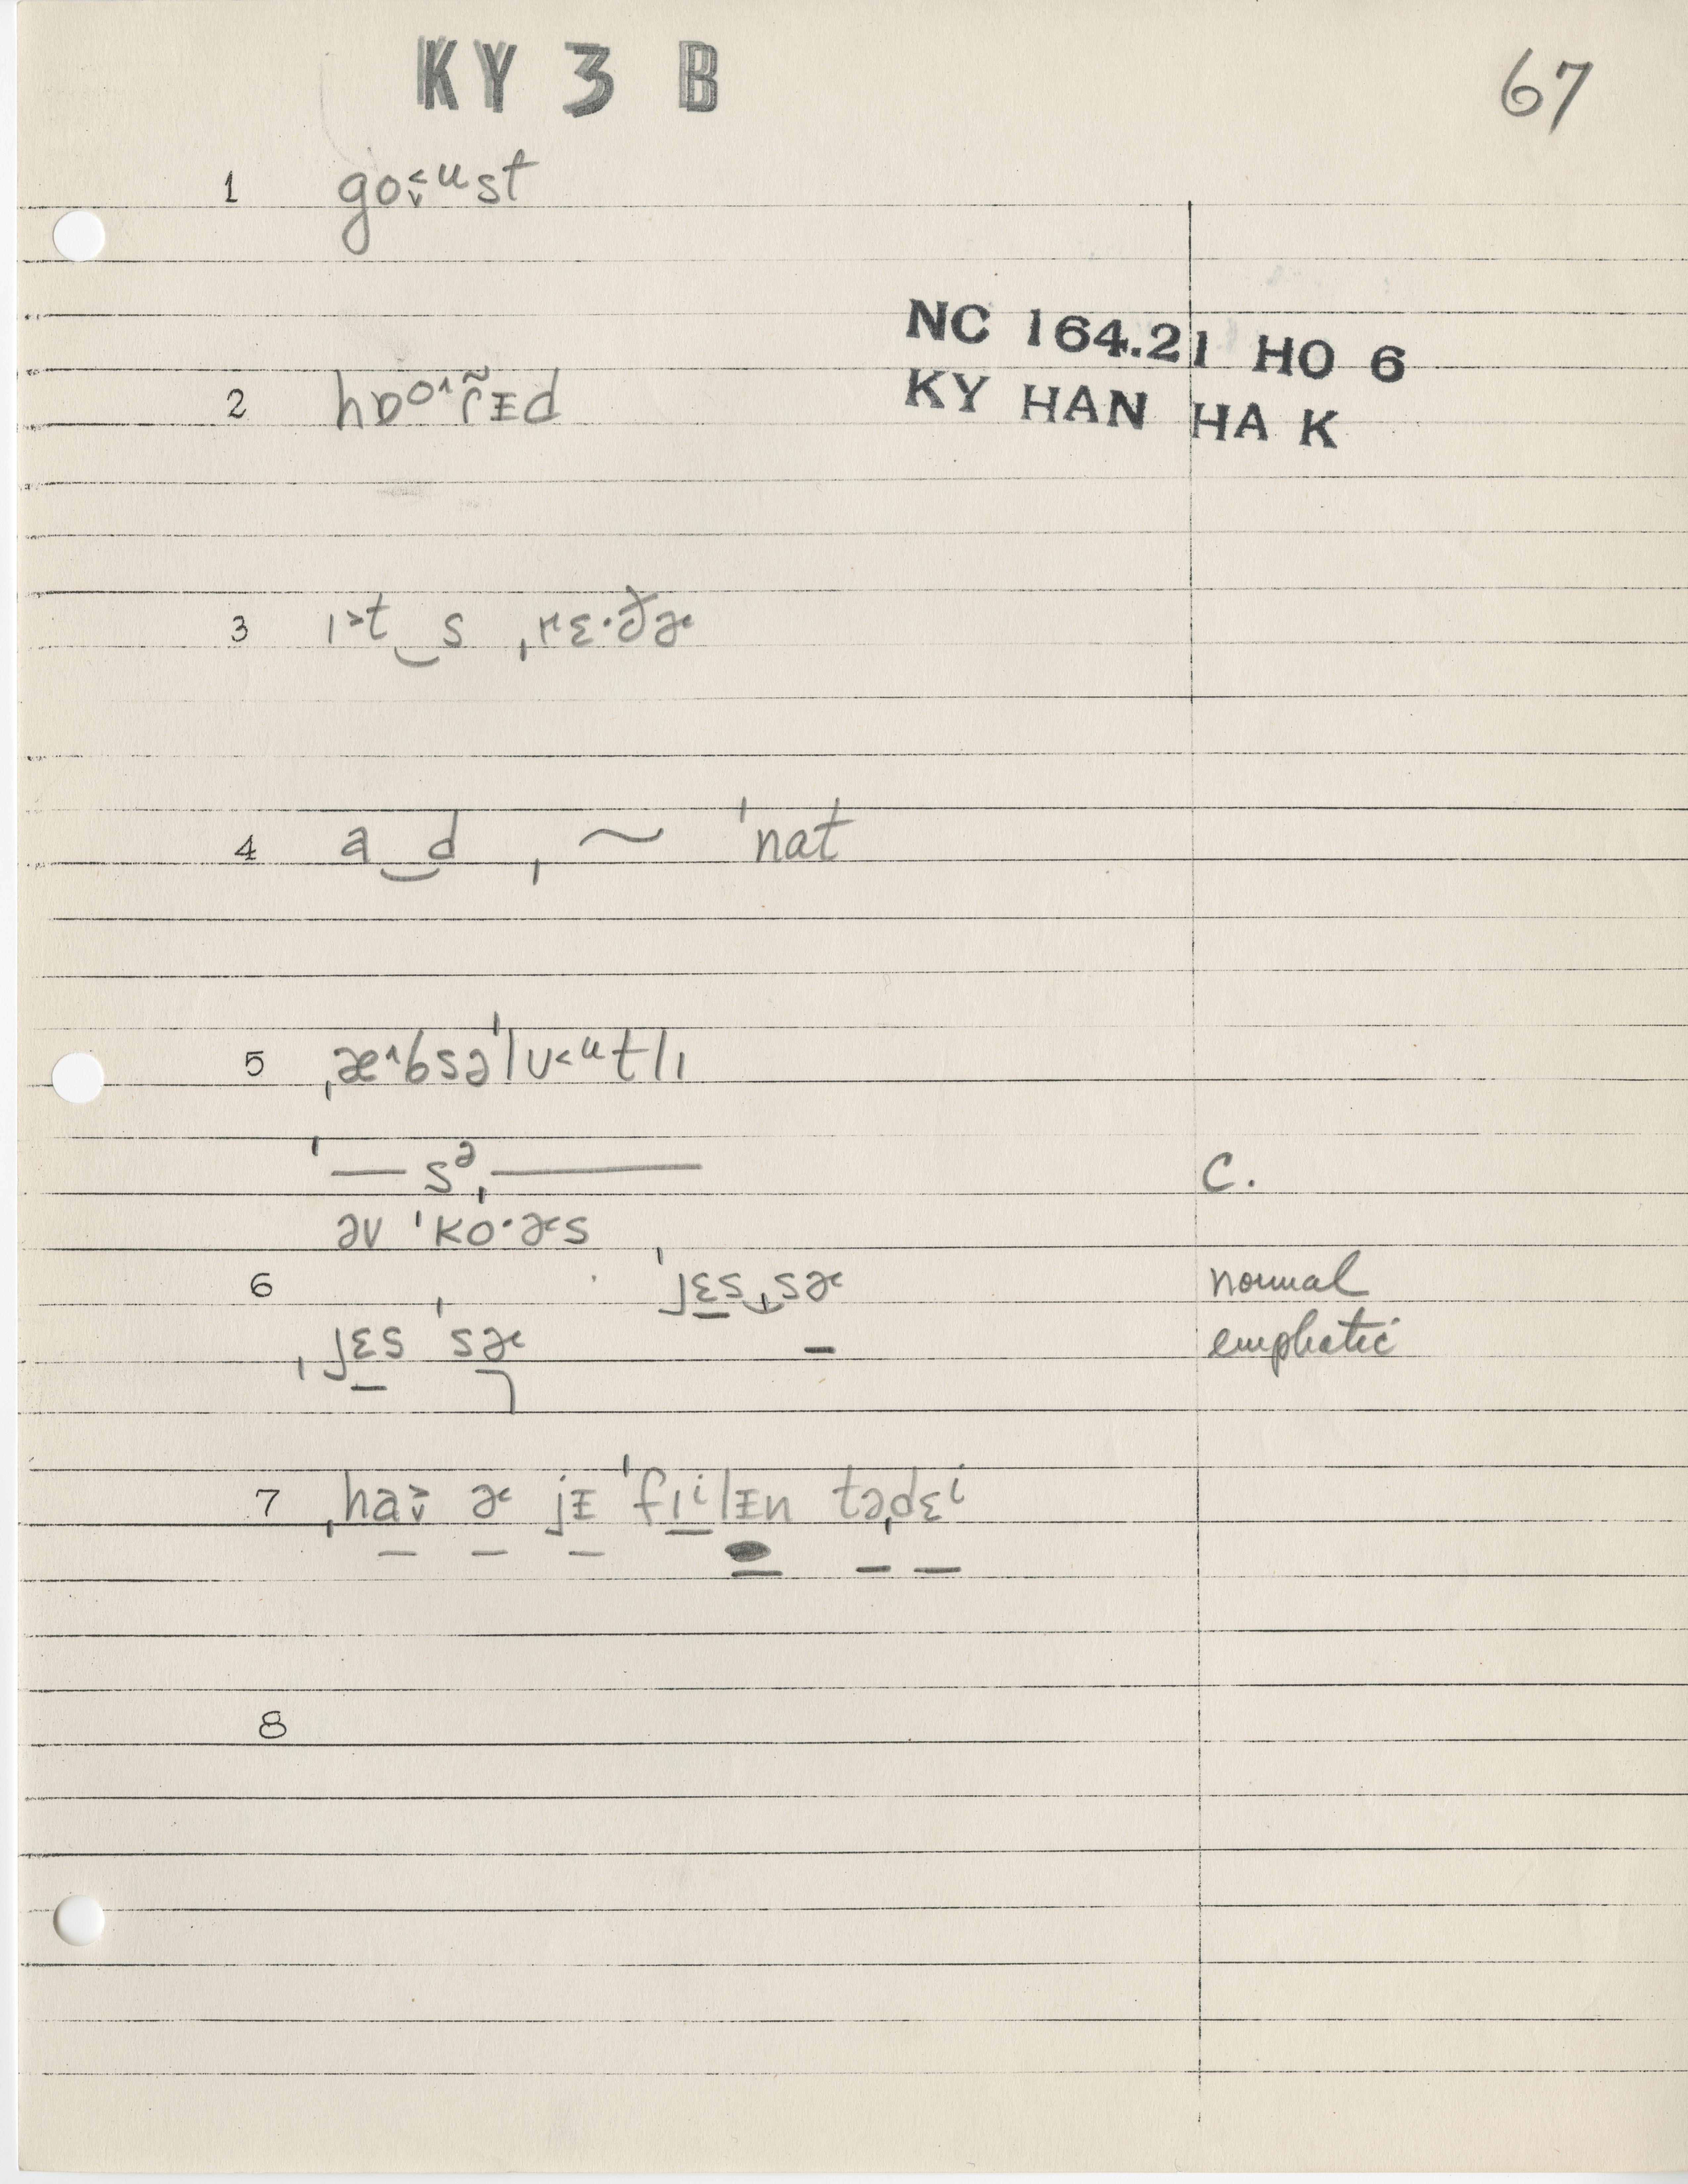 KY 3 B
67
1 go˂̬ᵘst
NC 164.21 HO 6
KY HAN HA K
2 hɒᴏ˄ɾ̃ᵻd
3 ɪ˃t‿s
4 a‿d , ~ ˈnat
5 ˌæ˄bsəˈlʉ˂ᵘtlɪ
ˈ— sə, —
C.
əv ˈko·ɚs
6 ˈjɛs ˌsɚ normal
ˌjɛs ˈsɚ emphatic
7 ˌhaˬ ɚ jᵻ ˈfɪⁱlᵻn təˌdɛⁱ
8